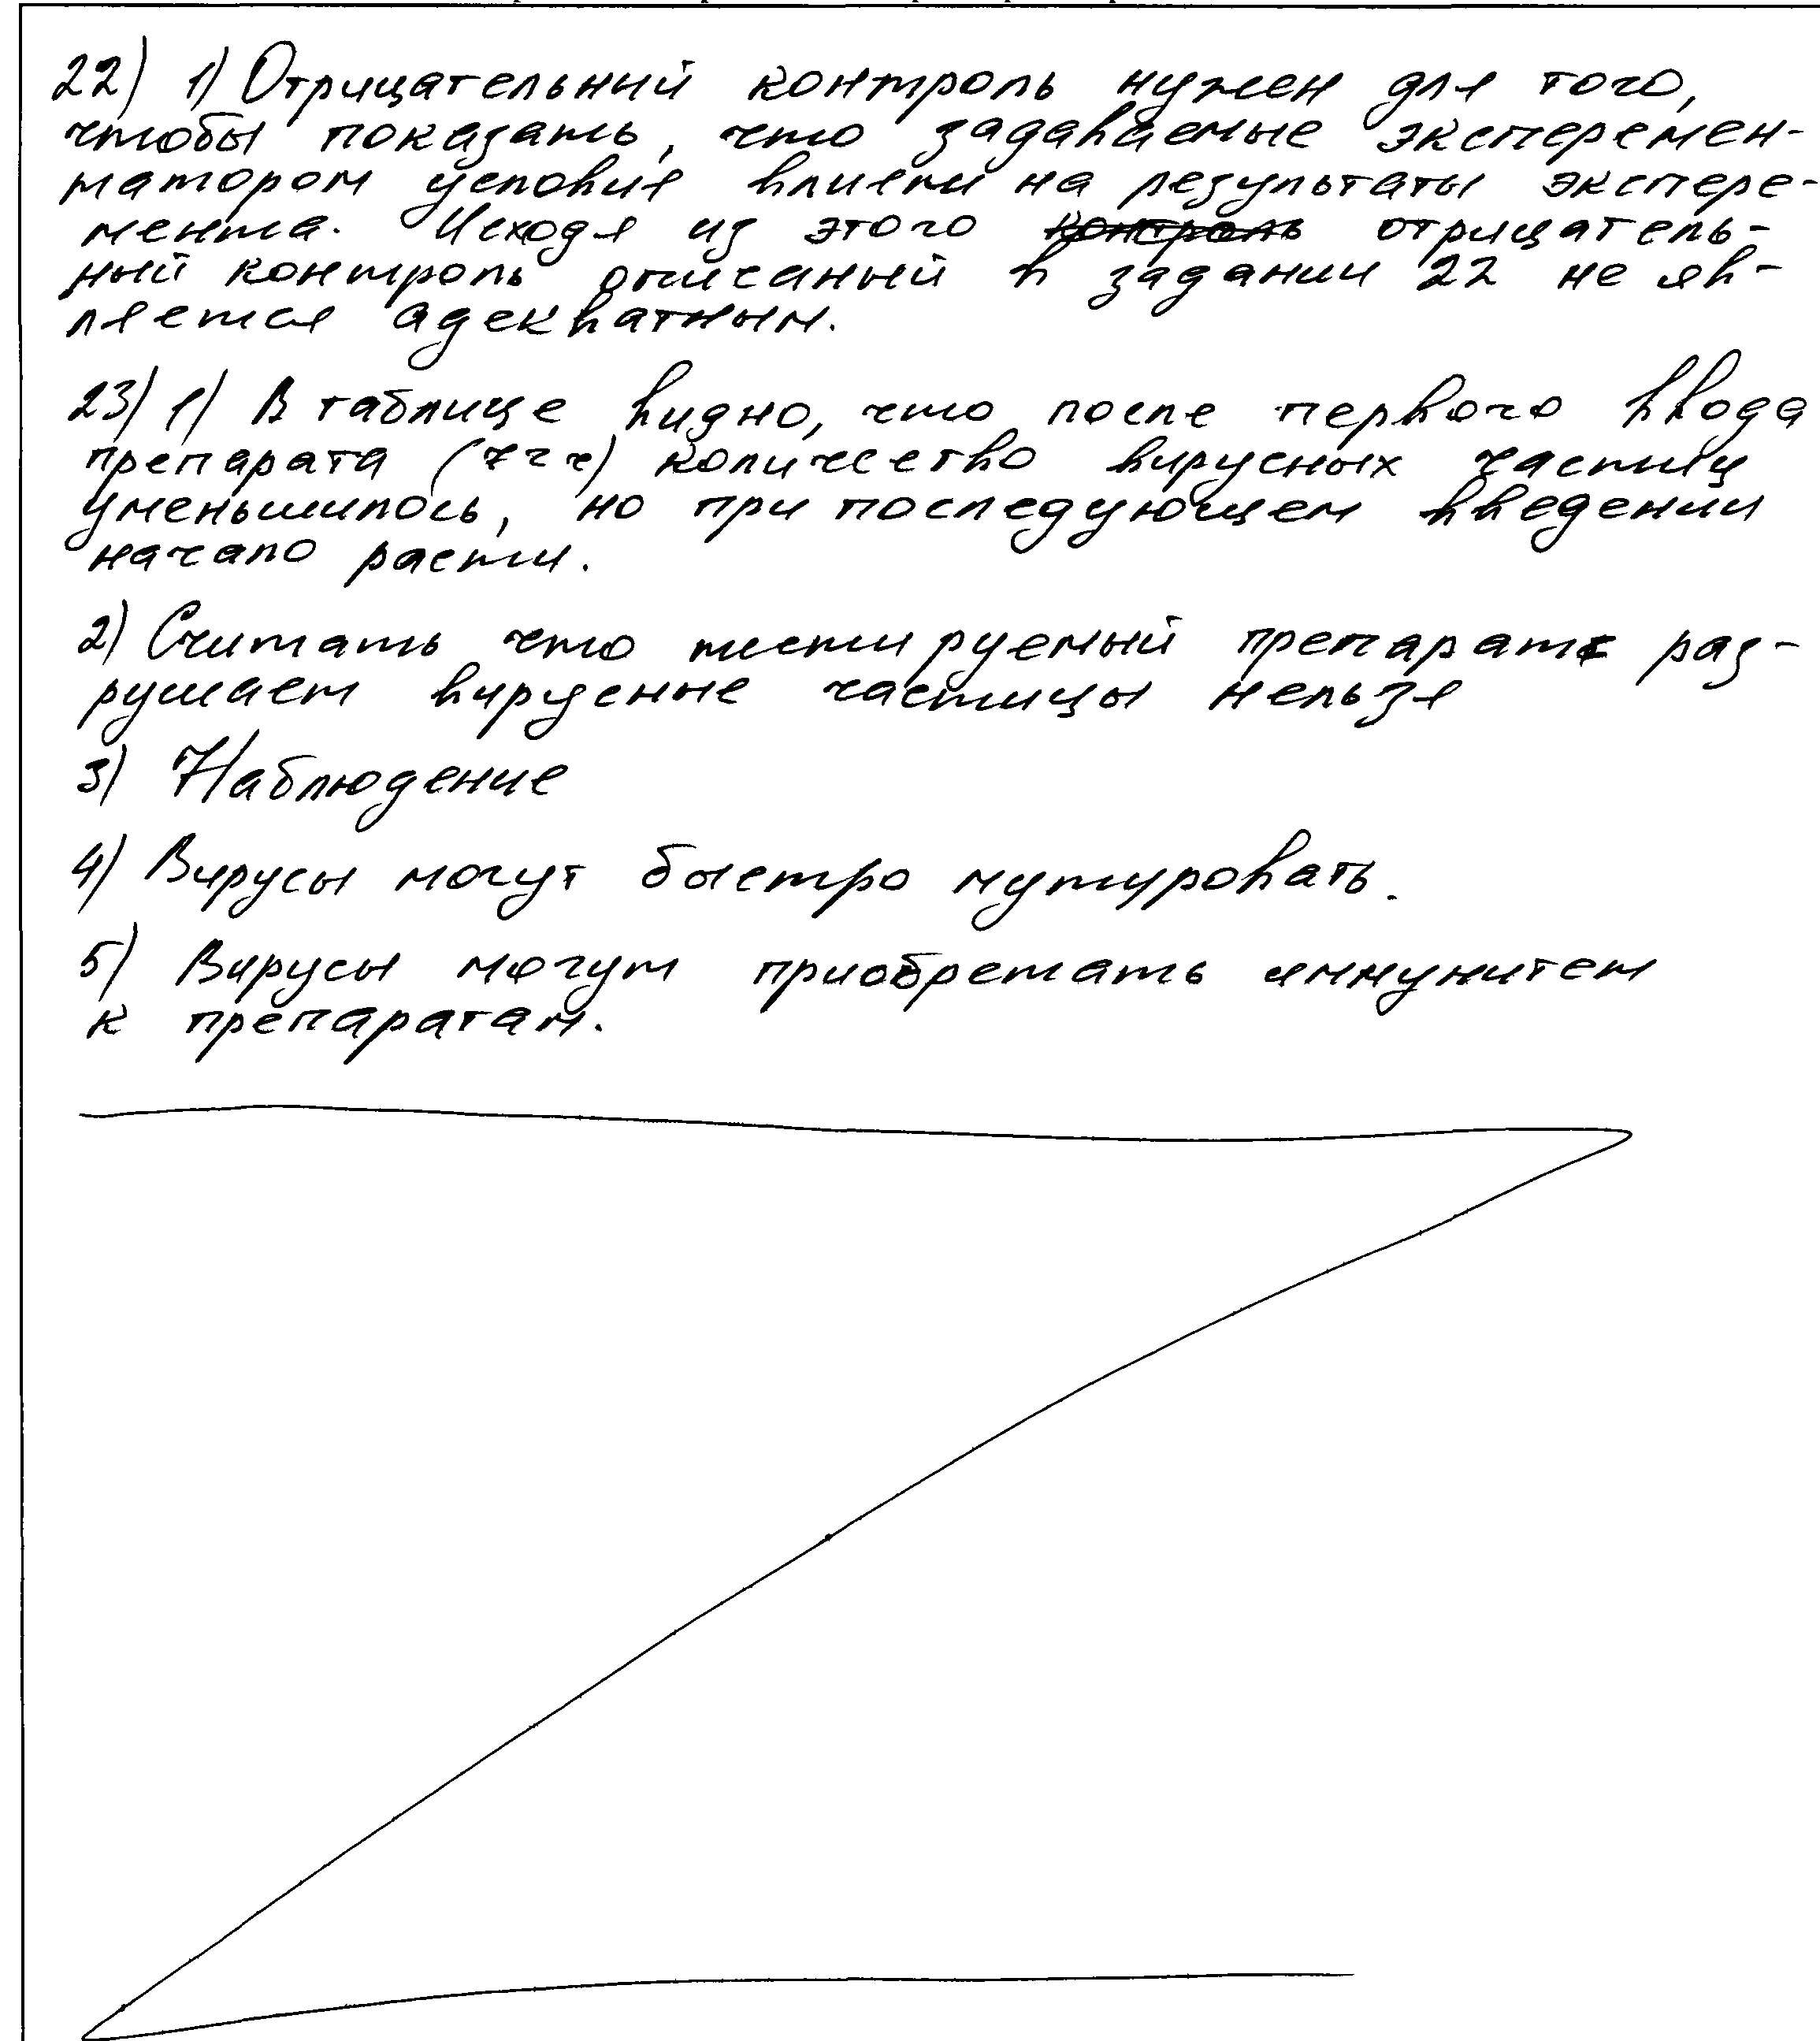 22) 1) Отрицательный контроль нужен для того,
чтобы показать, что задаваемые эксперемен-
татором условия влияли на результаты экспере-
мента. Исходя из этого контроль отрицатель-
ный контроль описаный в задании 22 не яв-
ляется адекватным.
23) 1) В таблице видно, что после первого ввода
препарата (72 ч) количество вирусных частиц
уменьшилось, но при последующем введении
начало расти.
2) Считать что тестируемый препарат раз-
рушает вирусные частицы нельзя
3) Наблюдение
4) Вирусы могут быстро мутировать.
5) Вирусы могут приобретать иммунитет
к препаратам.